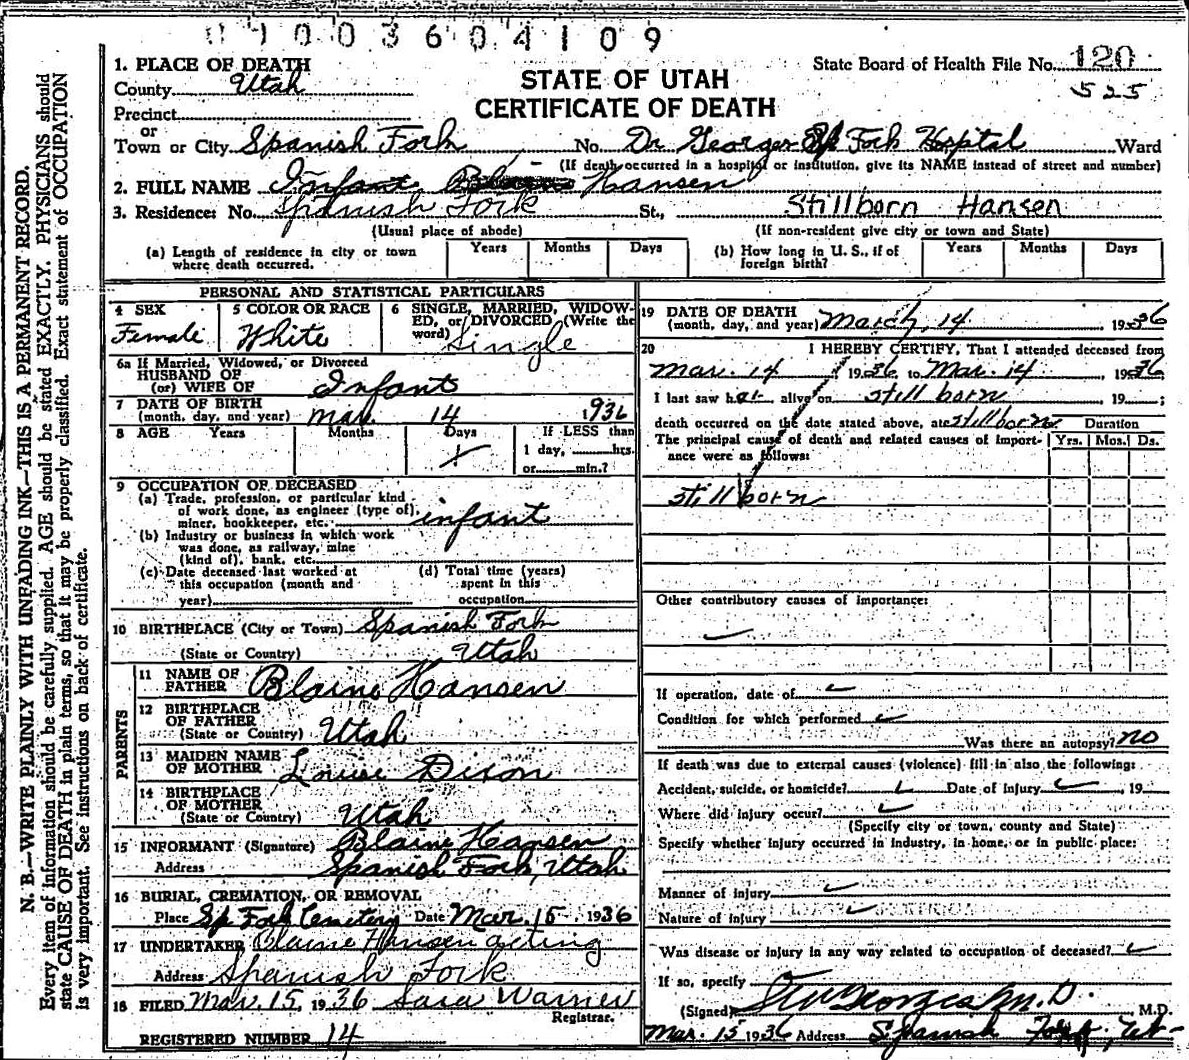 01003604109
1. PLACE OF DEATH
STATE OF UTAH
State Board of Health File No. 120
County Utah
CERTIFICATE OF DEATH
525
Precinct
or
Town or City Spanish Fork No. Dr Georges Sp Fork Hospital Ward
(If death occurred in a hospital or institution, give its NAME instead of street and number)
2. FULL NAME Infant Hansen
3. Residence: No. Spanish Fork St., Stillborn Hansen
(Usual place of abode) (If non-resident give city or town and State)
(a) Length of residence in city or town where death occurred. Years Months Days (b) How long in U. S., if of foreign birth? Years Months Days
PERSONAL AND STATISTICAL PARTICULARS
4 SEX Female
5 COLOR OR RACE White
6 SINGLE, MARRIED, WIDOWED, or DIVORCED (Write the word) Single
6a If Married, Widowed, or Divorced
HUSBAND OF
(or) WIFE OF Infant
7 DATE OF BIRTH
(month, day, and year) Mar. 14 1936
8 AGE Years Months Days If LESS than
1 day, hrs.
or min.?
9 OCCUPATION OF DECEASED
(a) Trade, profession, or particular kind
of work done, as engineer (type of),
miner, bookkeeper, etc. infant
(b) Industry or business in which work
was done, as railway, mine
(kind of), bank, etc.
(c) Date deceased last worked at
this occupation (month and
year)
(d) Total time (years)
spent in this
occupation
10 BIRTHPLACE (City or Town) Spanish Fork
(State or Country) Utah
PARENTS
11 NAME OF
FATHER Blaine Hansen
12 BIRTHPLACE
OF FATHER
(State or Country) Utah
13 MAIDEN NAME
OF MOTHER Louise Dixon
14 BIRTHPLACE
OF MOTHER
(State or Country) Utah
15 INFORMANT (Signature) Blaine Hansen
Address Spanish Fork, Utah
16 BURIAL, CREMATION, OR REMOVAL
Place Sp Fork Cemetery Date Mar. 15, 1936
17 UNDERTAKER Blaine Hansen acting
Address Spanish Fork
18 FILED Mar. 15, 1936 Sara Warner
Registrar.
REGISTERED NUMBER 14
19 DATE OF DEATH
(month, day, and year) March 14 1936
20 I HEREBY CERTIFY, That I attended deceased from
Mar. 14 1936 to Mar. 14 1936
I last saw her alive on still born 19 ;
death occurred on the date stated above, at stillborn m. Duration
The principal cause of death and related causes of importance were as follows: Yrs. Mos. Ds.
still born
Other contributory causes of importance:
If operation, date of
Condition for which performed
Was there an autopsy? no
If death was due to external causes (violence) fill in also the following:
Accident, suicide, or homicide? Date of injury , 19
Where did injury occur?
(Specify city or town, county and State)
Specify whether injury occurred in industry, in home, or in public place:
Manner of injury
Nature of injury
Was disease or injury in any way related to occupation of deceased?
If so, specify
(Signed) Georges M.D. M.D.
Mar. 15 1936 Address Spanish Fork, Ut
N. B.—WRITE PLAINLY WITH UNFADING INK—THIS IS A PERMANENT RECORD.
Every item of information should be carefully supplied. AGE should be stated EXACTLY. PHYSICIANS should
state CAUSE OF DEATH in plain terms, so that it may be properly classified. Exact statement of OCCUPATION
is very important. See instructions on back of certificate.